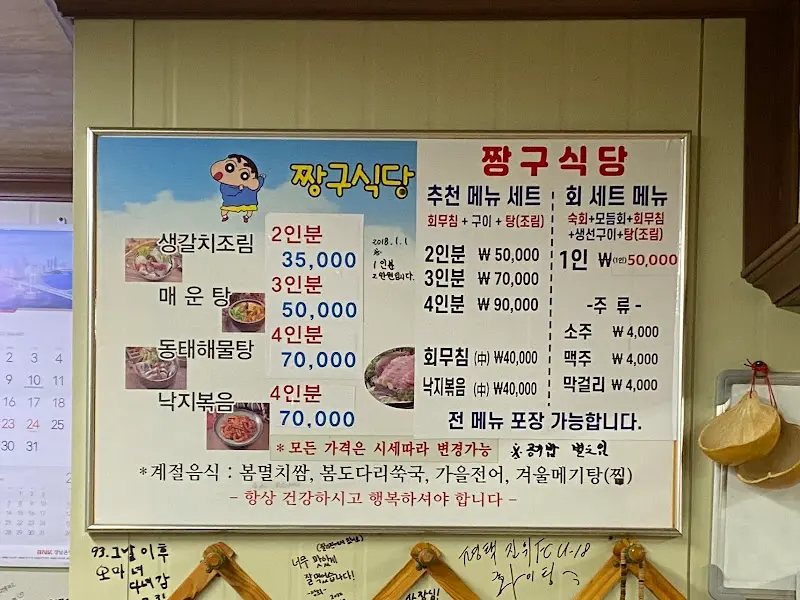 짱구식당
생갈치조림
매 운 탕
동태해물탕
낙지볶음
2인분
35,000
3인분
50,000
4인분
70,000
4인분
70,000
2018.1.1
1인분
짱구식당
추천 메뉴 세트
회무침 + 구이 + 탕(조림)
2인분 ₩ 50,000
3인분 ₩ 70,000
4인분 ₩ 90,000
회무침 (中) ₩40,000
낙지볶음 (中) ₩40,000
회 세트 메뉴
숙회+모듬회+회무침
+생선구이+탕(조림)
1인 ₩(1인)50,000
-주 류-
소주 ₩ 4,000
맥주 ₩ 4,000
막걸리 ₩ 4,000
전 메뉴 포장 가능합니다.
*모든 가격은 시세따라 변경가능
※ 공기밥 별도임
*계절음식 : 봄멸치쌈, 봄도다리쑥국, 가을전어, 겨울메기탕(찜)
- 항상 건강하시고 행복하셔야 합니다 -
2 3 4
9 10 11
16 17 18
23 24 25
30 31
93.그날이후
오마니
다녀감
너무 맛있게
잘먹었습니다!
평택 진위FC U-18
화이팅